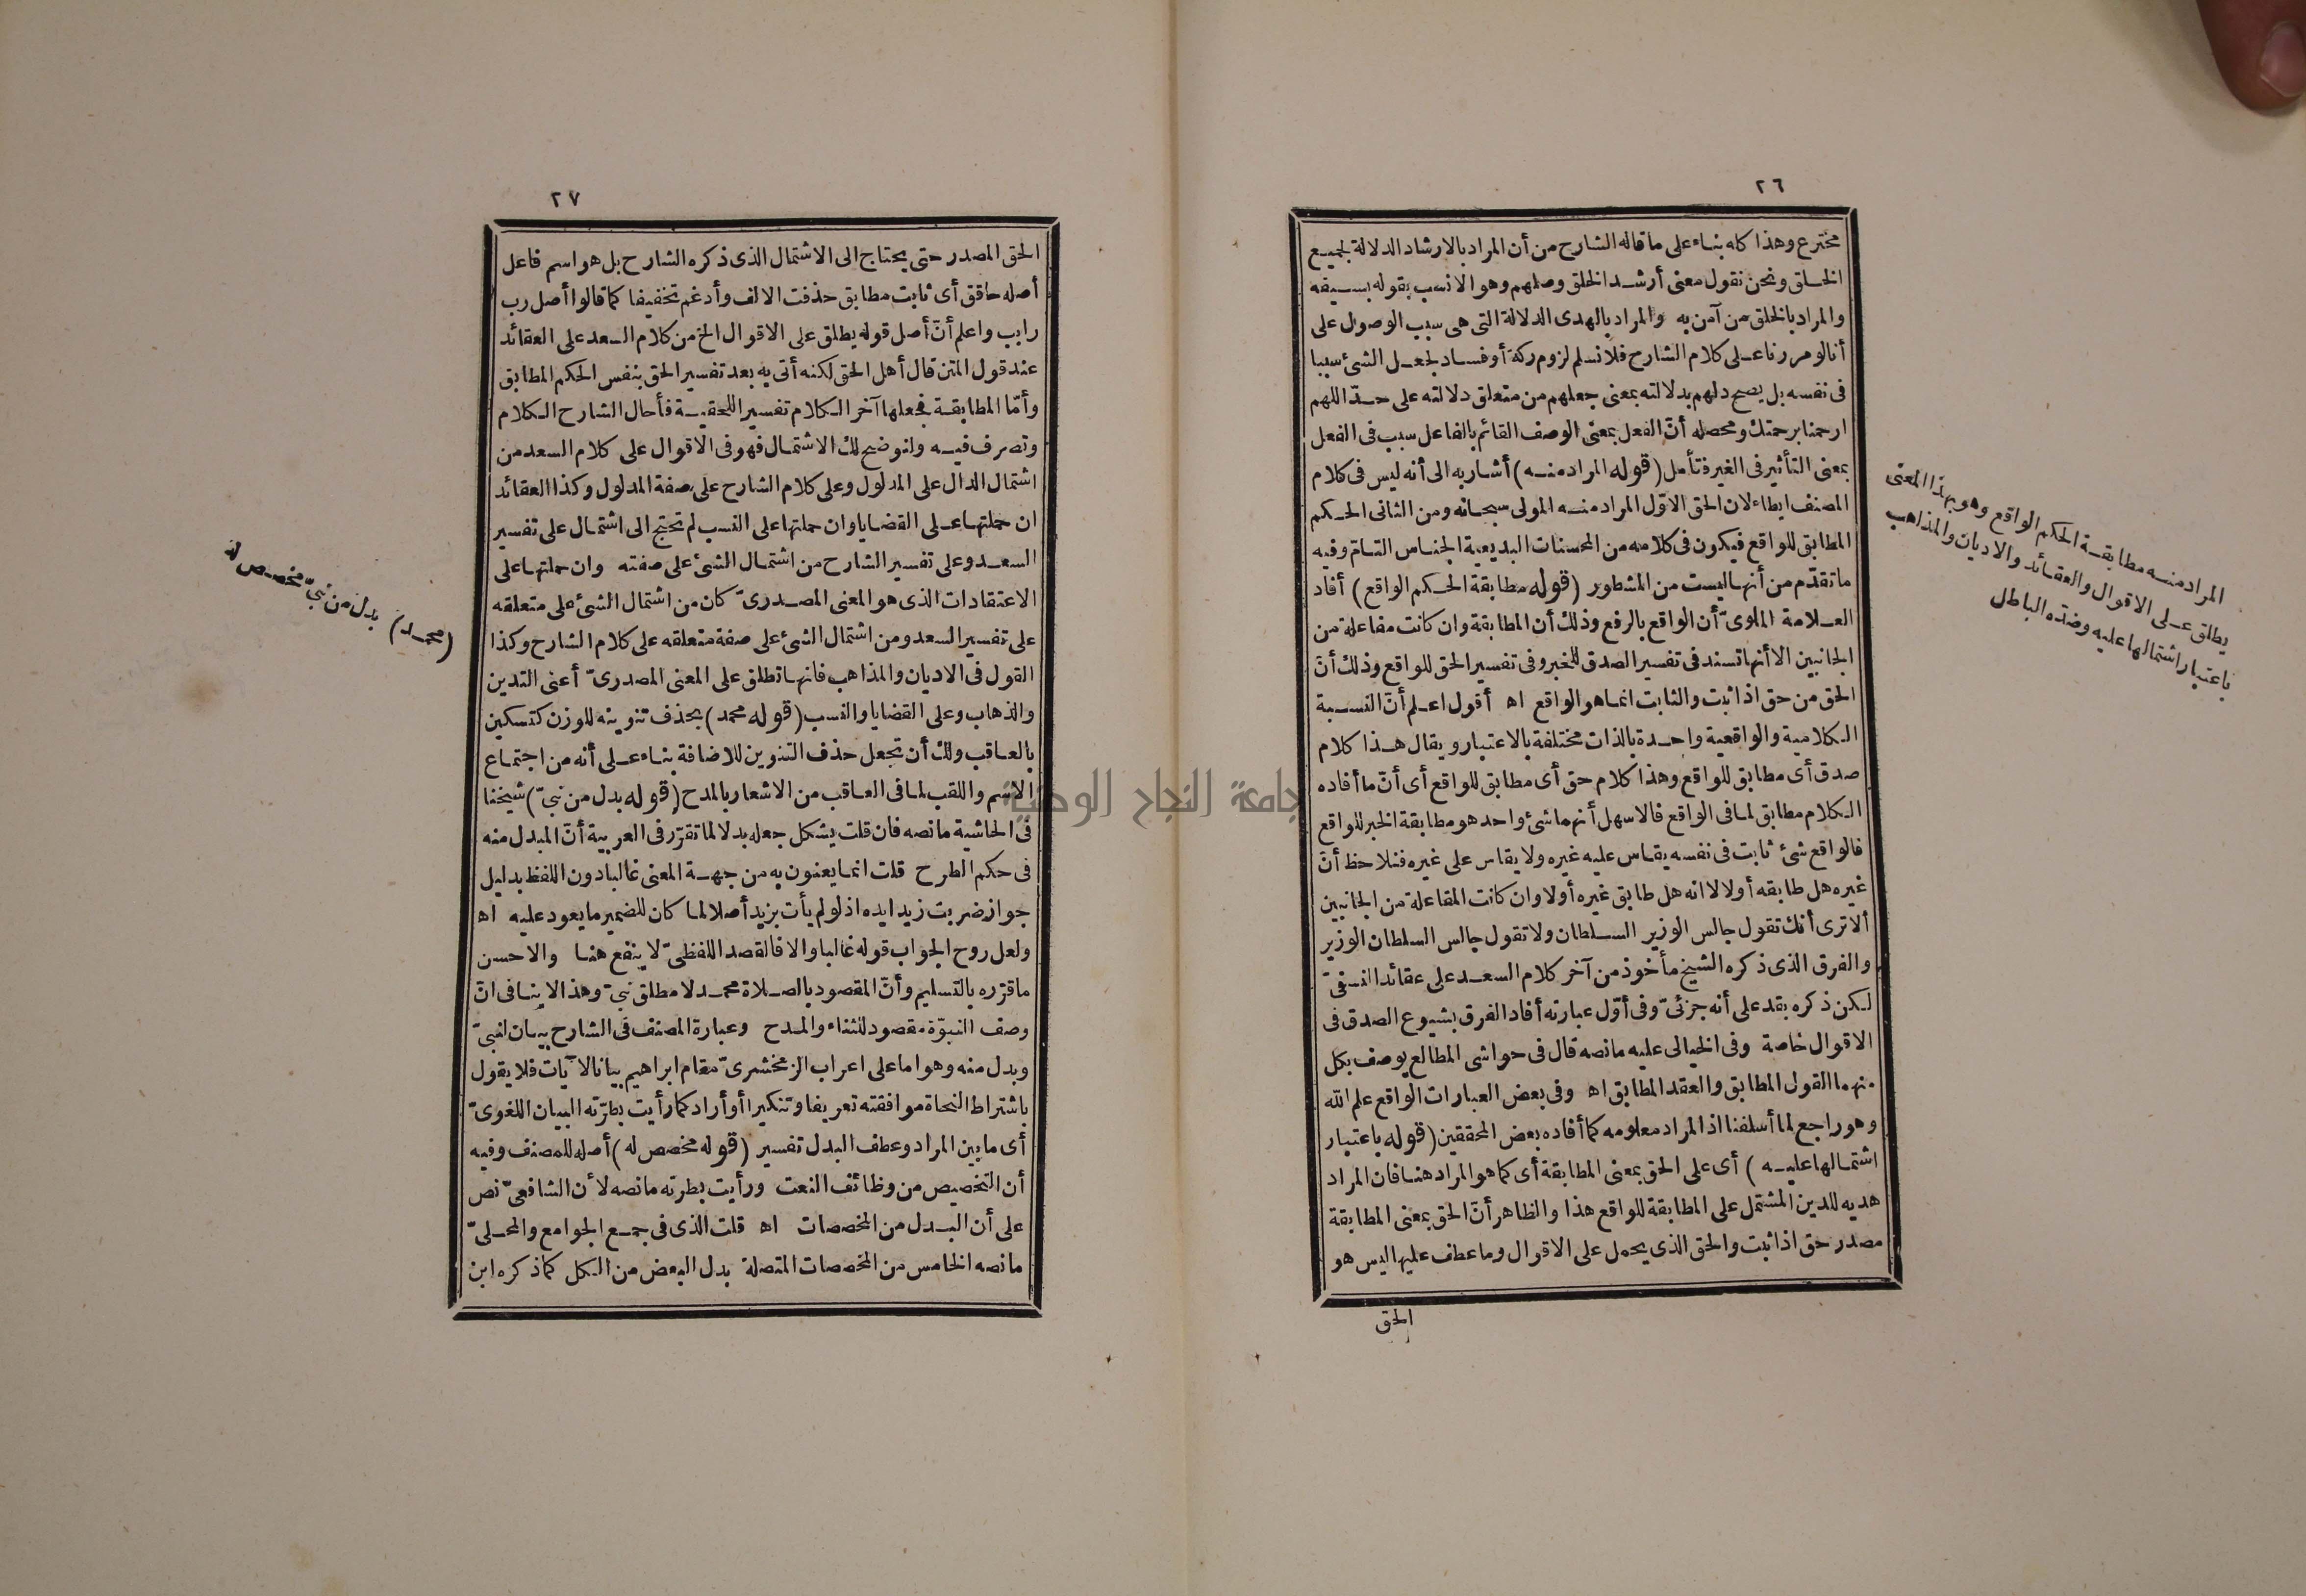 ٢٦
مخترع وهذا كله بناء على ما قاله الشارح من أن المراد بالارشاد الدلالة لجميع
الخلق ونحن نقول معنى أرشد الخلق وصلهم وهو الانسب بقوله بسيفه
والمراد بالخلق من آمن به والمراد بالهدى الدلالة التى هى سبب الوصول على
أنا لو مررنا على كلام الشارح فلا نسلم لزوم ركة أو فساد لجعل الشئ سببا
فى نفسه بل يصح دلهم بدلالته بمعنى جعلهم من متعلق دلالته على حدّ اللهم
ارحمنا برحمتك ومحصله أنّ الفعل بمعنى الوصف القائم بالفاعل سبب فى الفعل
بمعنى التأثير فى الغير فتأمل (قوله المراد منه) أشار به الى أنه ليس فى كلام
المصنف ايطاء لان الحق الاوّل المراد منه المولى سبحانه ومن الثانى الحكم
المطابق للواقع فيكون فى كلامه من المحسنات البديعية الجناس التامّ وفيه
ما تقدّم من أنها ليست من المشطور (قوله مطابقة الحكم الواقع) أفاد
العلامة الملوىّ أن الواقع بالرفع وذلك أن المطابقة وان كانت مفاعلة من
الجانبين الا أنها تسند فى تفسير الصدق للخبر وفى تفسير الحق للواقع وذلك أنّ
الحق من حق اذا ثبت والثابت انما هو الواقع اه أقول اعلم أنّ النسبة
الكلامية والواقعية واحدة بالذات مختلفة بالاعتبار ويقال هذا كلام
صدق أى مطابق للواقع وهذا كلام حق أى مطابق للواقع أى أنّ ما أفاده
الكلام مطابق لما فى الواقع فالاسهل أنهما شئ واحد هو مطابقة الخبر للواقع
فالواقع شئ ثابت فى نفسه يقاس عليه غيره ولا يقاس على غيره فنلاحظ أنّ
غيره هل طابقه أولا لا انه هل طابق غيره أولا وان كانت المفاعلة من الجانبين
ألا ترى أنك تقول جالس الوزير السلطان ولا تقول جالس السلطان الوزير
والفرق الذى ذكره الشيخ مأخوذ من آخر كلام السعد على عقائد النسفىّ
لكن ذكره بقد على أنه جزئىّ وفى أوّل عبارته أفاد الفرق بشيوع الصدق فى
الاقوال خاصة وفى الخيالى عليه ما نصه قال فى حواشى المطالع يوصف بكل
منهما القول المطابق والعقد المطابق اه وفى بعض العبارات الواقع علم الله
وهو راجع لما أسلفنا اذ المراد معلومه كما أفاده بعض المحققين (قوله باعتبار
اشتمالها عليه) أى على الحق بمعنى المطابقة أى كما هو المراد هنا فان المراد
هديه للدين المشتمل على المطابقة للواقع هذا والظاهر أنّ الحق بمعنى المطابقة
مصدر حق اذا ثبت والحق الذى يحمل على الاقوال وما عطف عليها ليس هو
الحق
المراد منه مطابقة الحكم الواقع وهو بهذا المعنى
يطلق على الاقوال والعقائد والاديان والمذاهب
باعتبار اشتمالها عليه وضدّه الباطل
٢٧
الحق المصدر حتى يحتاج الى الاشتمال الذى ذكره الشارح بل هو اسم فاعل
أصله حاقق أى ثابت مطابق حذفت الالف وأدغم تخفيفا كما قالوا أصل رب
رابب واعلم أنّ أصل قوله يطلق على الاقوال الخ من كلام السعد على العقائد
عند قول المتن قال أهل الحق لكنه أتى به بعد تفسير الحق بنفس الحكم المطابق
وأمّا المطابقة فجعلها آخر الكلام تفسيرا للحقية فأحال الشارح الكلام
وتصرف فيه ولنوضح لك الاشتمال فهو فى الاقوال على كلام السعد من
اشتمال الدال على المدلول وعلى كلام الشارح على صفة المدلول وكذا العقائد
ان حملتها على القضايا وان حملتها على النسب لم تحتج الى اشتمال على تفسير
السعد وعلى تفسير الشارح من اشتمال الشئ على صفته وان حملتها على
الاعتقادات الذى هو المعنى المصدرىّ كان من اشتمال الشئ على متعلقه
على تفسير السعد ومن اشتمال الشئ على صفة متعلقه على كلام الشارح وكذا
القول فى الاديان والمذاهب فانها تطلق على المعنى المصدرىّ أعنى التدين
والذهاب وعلى القضايا والنسب (قوله محمد) بحذف تنوينه للوزن كتسكين
بالعاقب ولك أن تجعل حذف التنوين للاضافة بناء على أنه من اجتماع
الاسم واللقب لما فى العاقب من الاشعار بالمدح (قوله بدل من نبىّ) شيخنا
فى الحاشية ما نصه فان قلت يشكل جعله بدلا لما تقرّر فى العربية أنّ المبدل منه
فى حكم الطرح قلت انما يعنون به من جهة المعنى غالبا دون اللفظ بدليل
جواز ضربت زيدا يده اذ لو لم يأت بزيد أصلا لما كان للضمير ما يعود عليه اه
ولعل روح الجواب قوله غالبا والا فالقصد اللفظىّ لا ينفع هنا والاحسن
ما قرّره بالتسليم وأنّ المقصود بالصلاة محمد لا مطلق نبىّ وهذا لا ينافى انّ
وصف النبوّة مقصود للثناء والمدح وعبارة المصنف فى الشارح بيان لنبىّ
وبدل منه وهو اما على اعراب الزمخشرىّ مقام ابراهيم بيانا لآيات فلا يقول
باشتراط النحاة موافقته تعريفا وتنكيرا أو أراد كما رأيت بطرّته البيان اللغوىّ
أى ما بين المراد وعطف البدل تفسير (قوله مخصص له) أصله للمصنف وفيه
أن التخصيص من وظائف النعت ورأيت بطرته ما نصه لأن الشافعىّ نص
على أن البدل من المخصصات اه قلت الذى فى جمع الجوامع والمحلىّ
ما نصه الخامس من المخصصات المتصلة بدل البعض من الكل كما ذكره ابن
(محمد) بدل من نبىّ مخصص له
جامعة النجاح الوطنية